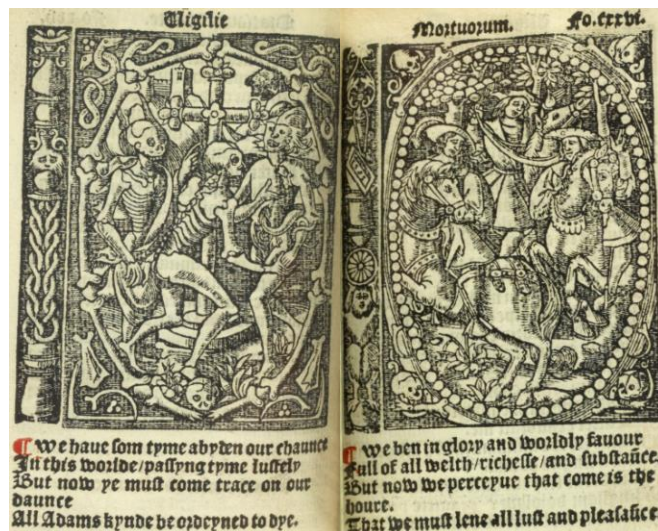 Uigilie
¶ we haue som tyme abyden our chaunce
In this worlde/passyng tyme lustely
But now ye must come trace on our
daunce
All Adams kynde be ordeyned to dye.
Mortuorum. Fo.cxxvi.
¶ we ben in glory and worldly fauour
Full of all welth/richesse/and substāce.
But now we perceyue that come is the
houre.
That we must leue all lust and pleasāce